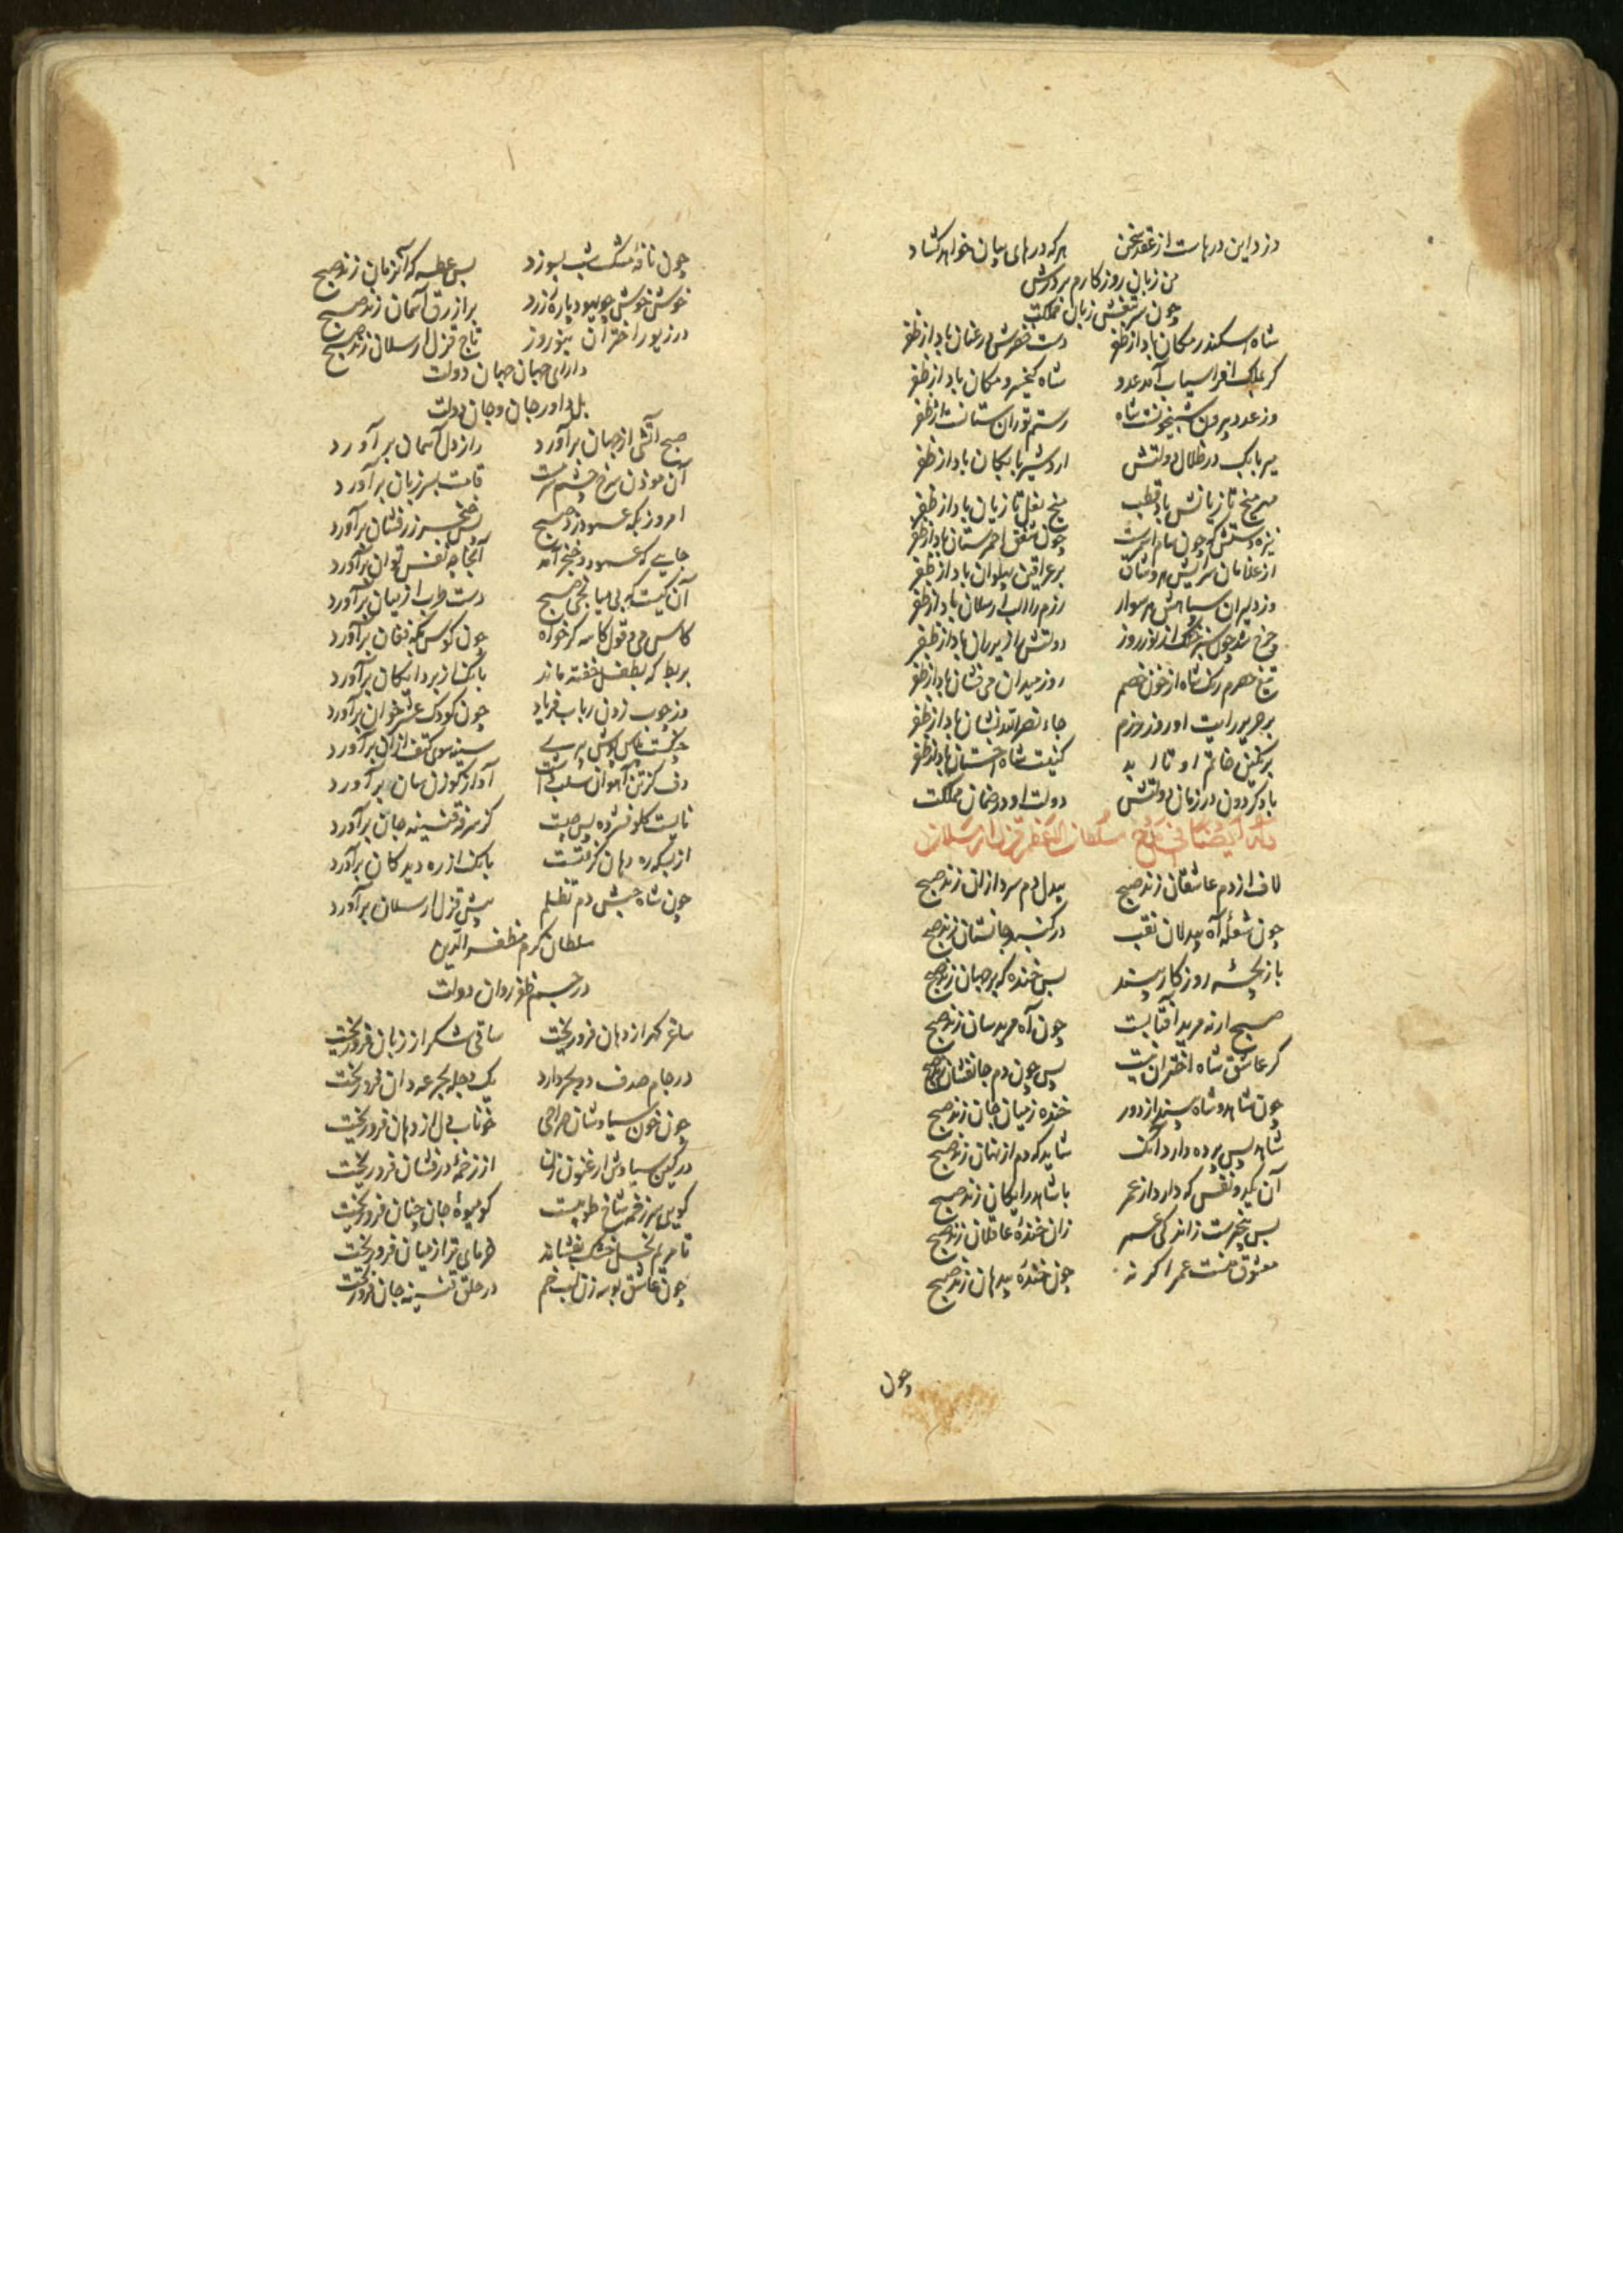 دزد این درهاست از عقد سخن    هر که درهای بیان خواهد گشاد
من زبان روزگارم بر درش
چون سر تیغش زبان مملکت
شاه اسکندر مکان باد از ظفر    دست خضرش در عنان باد از ظفر
گر بملک افراسیاب آمد عدو    شاه کیخسرو مکان باد از ظفر
وز عدد بیرون شبیخونست شاه    رستم توران ستانست از ظفر
میر بابک در ظلال دولتش    اردشیر بابکان باد از ظفر
میخ تازیانش باد قطب    میخ نعل تازیان باد از ظفر
نیزه دستش که چون شام    چون شفق احمر سنان باد از ظفر
از غلامان سرایش هر وشاق    بر عراقین پهلوان باد از ظفر
وز دلیران سپاهش هر سوار    رزم را الب ارسلان باد از ظفر
چرخ شد چون سبز خنگ از نوروز    دولتش را زیر ران باد از ظفر
تیغ رنگ شاه از خون خصم    روز میدان می فشان باد از ظفر
بر حریر رایت او روز رزم    جاء نصر الله نشان باد از ظفر
بر نگین خاتم او تا ابد    کنیت شاه اخستان باد از ظفر
باد گردون در زمان دولتش    دولت او در ضمان مملکت
وله ایضا فی مدح سلطان الاعظم قزل ارسلان
لاف از دم عاشقان زند صبح    بیدل دم سرد از آن زند صبح
چون شعله آه بیدلان نقب    در گنبد جانستان زند صبح
بازیچه روزگار بیند    بس خنده که بر جهان زند صبح
صبح ارنه مرید آفتابست    چون آه مریدسان زند صبح
گر عاشق شاه اختران نیست    پس چون دم جانفشان زند صبح
چون شاهد و شاه بیند از دور    خنده ز میان جان زند صبح
شاهد پس پرده دارد آنک    شاید که دم از نهان زند صبح
آن یکدو نفس که دارد از عمر    با شاهد رایگان زند صبح
بس بیخبرست ز اندکی عمر    زان خنده عاقلان زند صبح
معشوق منست عمر اگر نه    چون خنده بیدهان زند صبح
چون
چون نافه مشک شب بسوزد    بس عطسه که آنزمان زند صبح
خوش خوش چو یهود پاره زرد    بر ازرق آسمان زند صبح
در زیور اختران بنوروز    تاج قزل ارسلان زند صبح
دارای جهان جهان دولت
بل داور جان و جان دولت
صبح آتشی از جهان برآورد    راز دل آسمان برآورد
آن موذن سرخ چشم سرمست    قامت بسر زبان برآورد
امروز بگه عمود زد صبح    پس خنجر زرفشان برآورد
جایی که عمود و خنجر آمد    آنجا چه نفس توان برآورد
آن کیست که بی میانجی صبح    دست طرب از میان برآورد
کاس می و قول کاسه گر خواه    چون کوس بگه فغان برآورد
بربط که بطفل خفته ماند    بانگ از بر دایگان برآورد
وز چوب زدن رباب فریاد    چون کودک عشرخوان برآورد
چنگست پلاس پوش پیری    سینه سوی کتف از آن برآورد
دف کز تن آهوان سلب داشت    آواز گوزن سان برآورد
نایست گلو فشرده پس چیست    کز سرفه قنینه جان برآورد
از بسکه ره دهان گرفتست    بانگ از ره دیدگان برآورد
چون شاه حبش دم تظلم    پیش قزل ارسلان برآورد
سلطان کرم مظفرالدین
در جسم ظفر روان دولت
ساغر گهر از دهان فرو ریخت    ساقی شکر از زبان فرو ریخت
در جام صدف دو بحر دارد    یک دجله بجرعه دان فرو ریخت
چون خون سیاوشان صراحی    خوناب دل از دهان فرو ریخت
در کین سیاوش ارغنون زن    از زخمه درفشان فرو ریخت
گویی سر زخمه شاخ طوبیست    کو میوه جان چنان فرو ریخت
تا مریم نخل خشک بفشاند    خرمای تر از میان فرو ریخت
چون عاشق بوسه زن لب خم    در حلق قنینه جان فرو ریخت